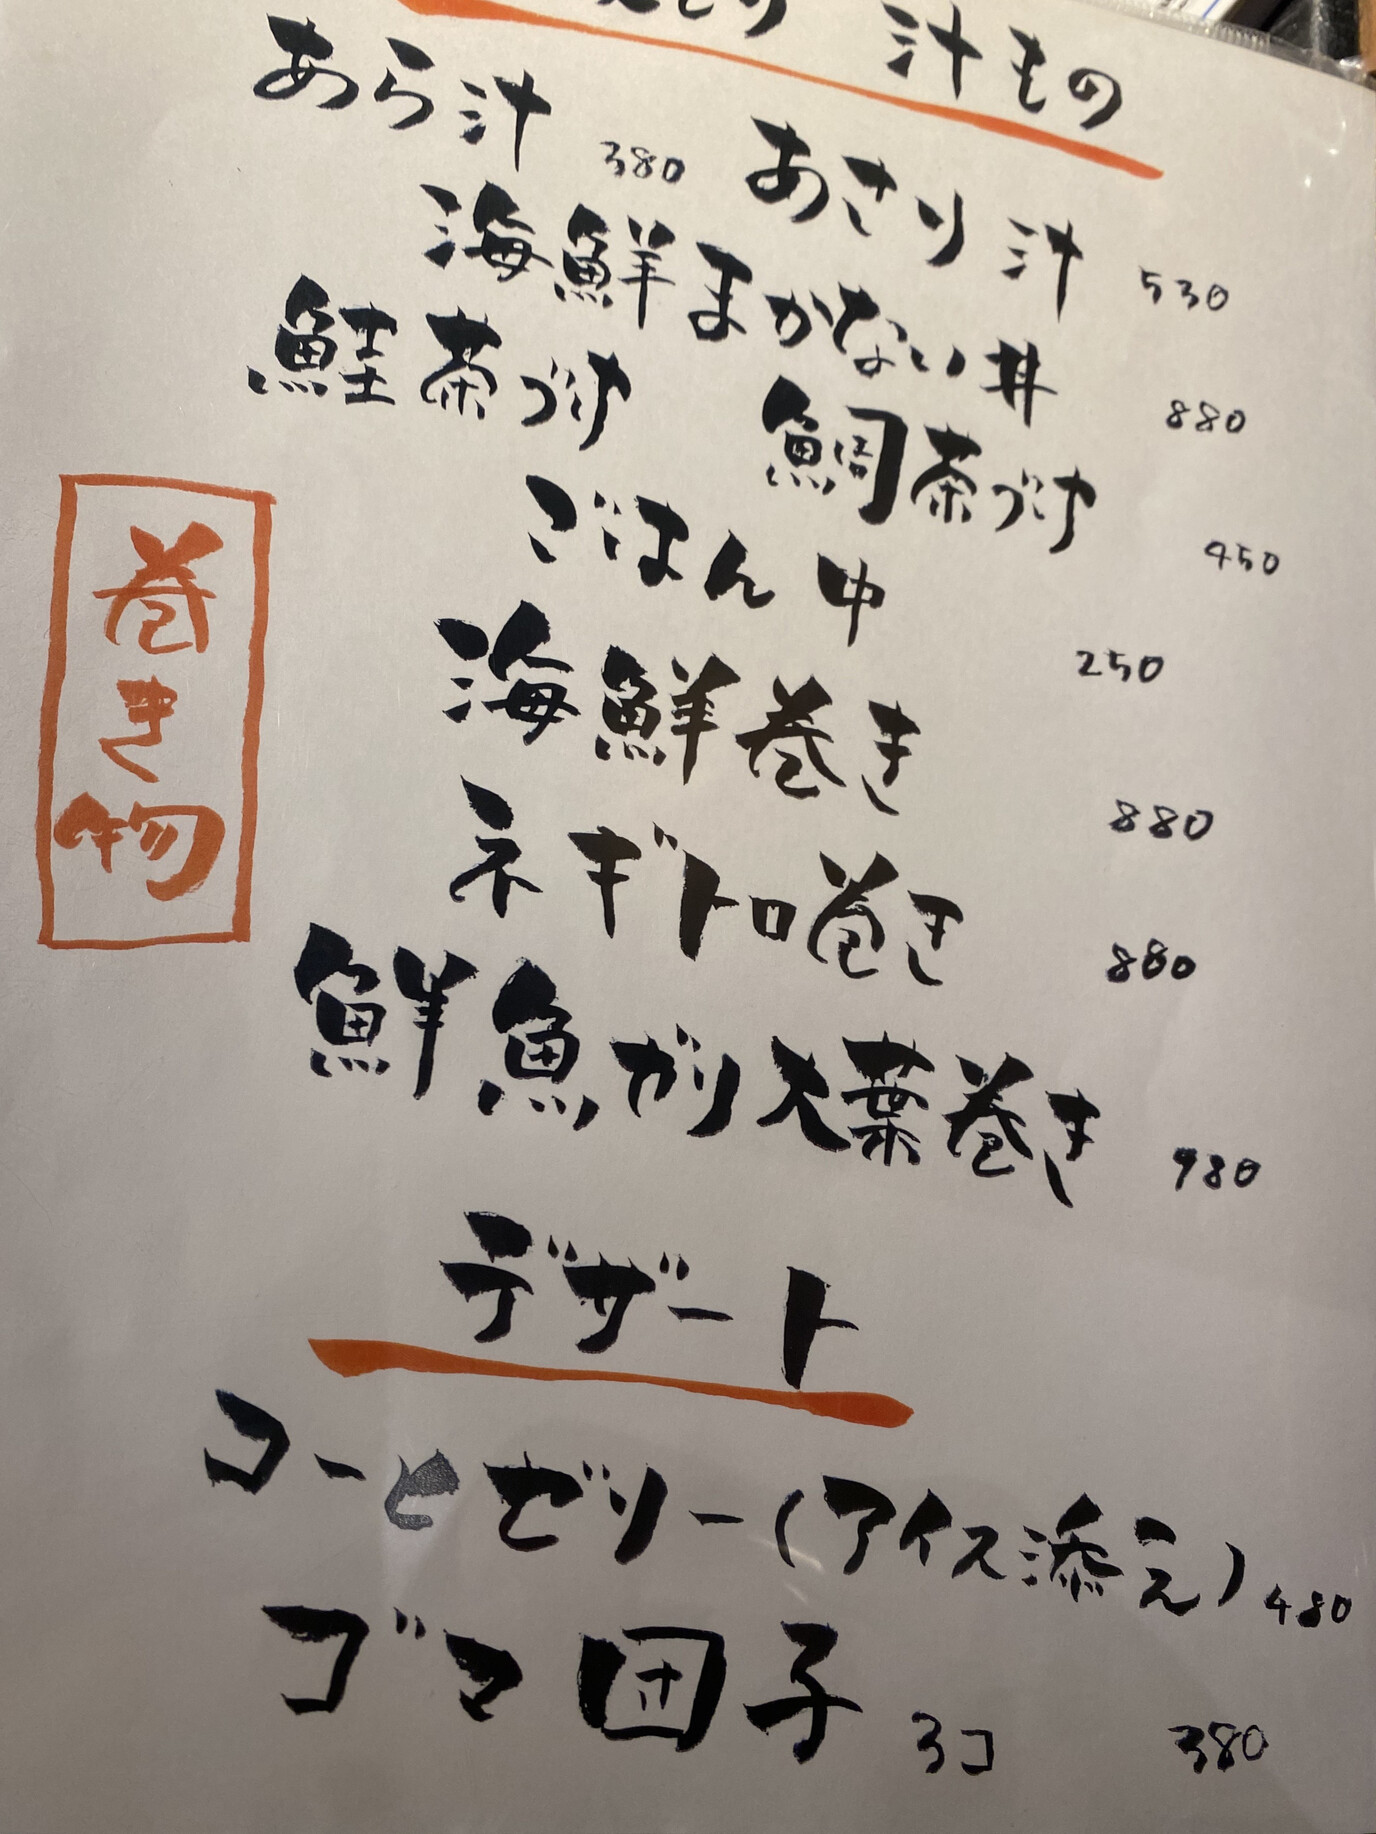 汁もの
あら汁 380 あさり汁 530
海鮮まかない丼 880
鮭茶づけ 鯛茶づけ 450
ごはん 中 250
巻き物
海鮮巻き 880
ネギトロ巻き 880
鮮魚ガリ大葉巻き 980
デザート
コーヒゼリー(アイス添え) 480
ゴマ団子 3コ 380